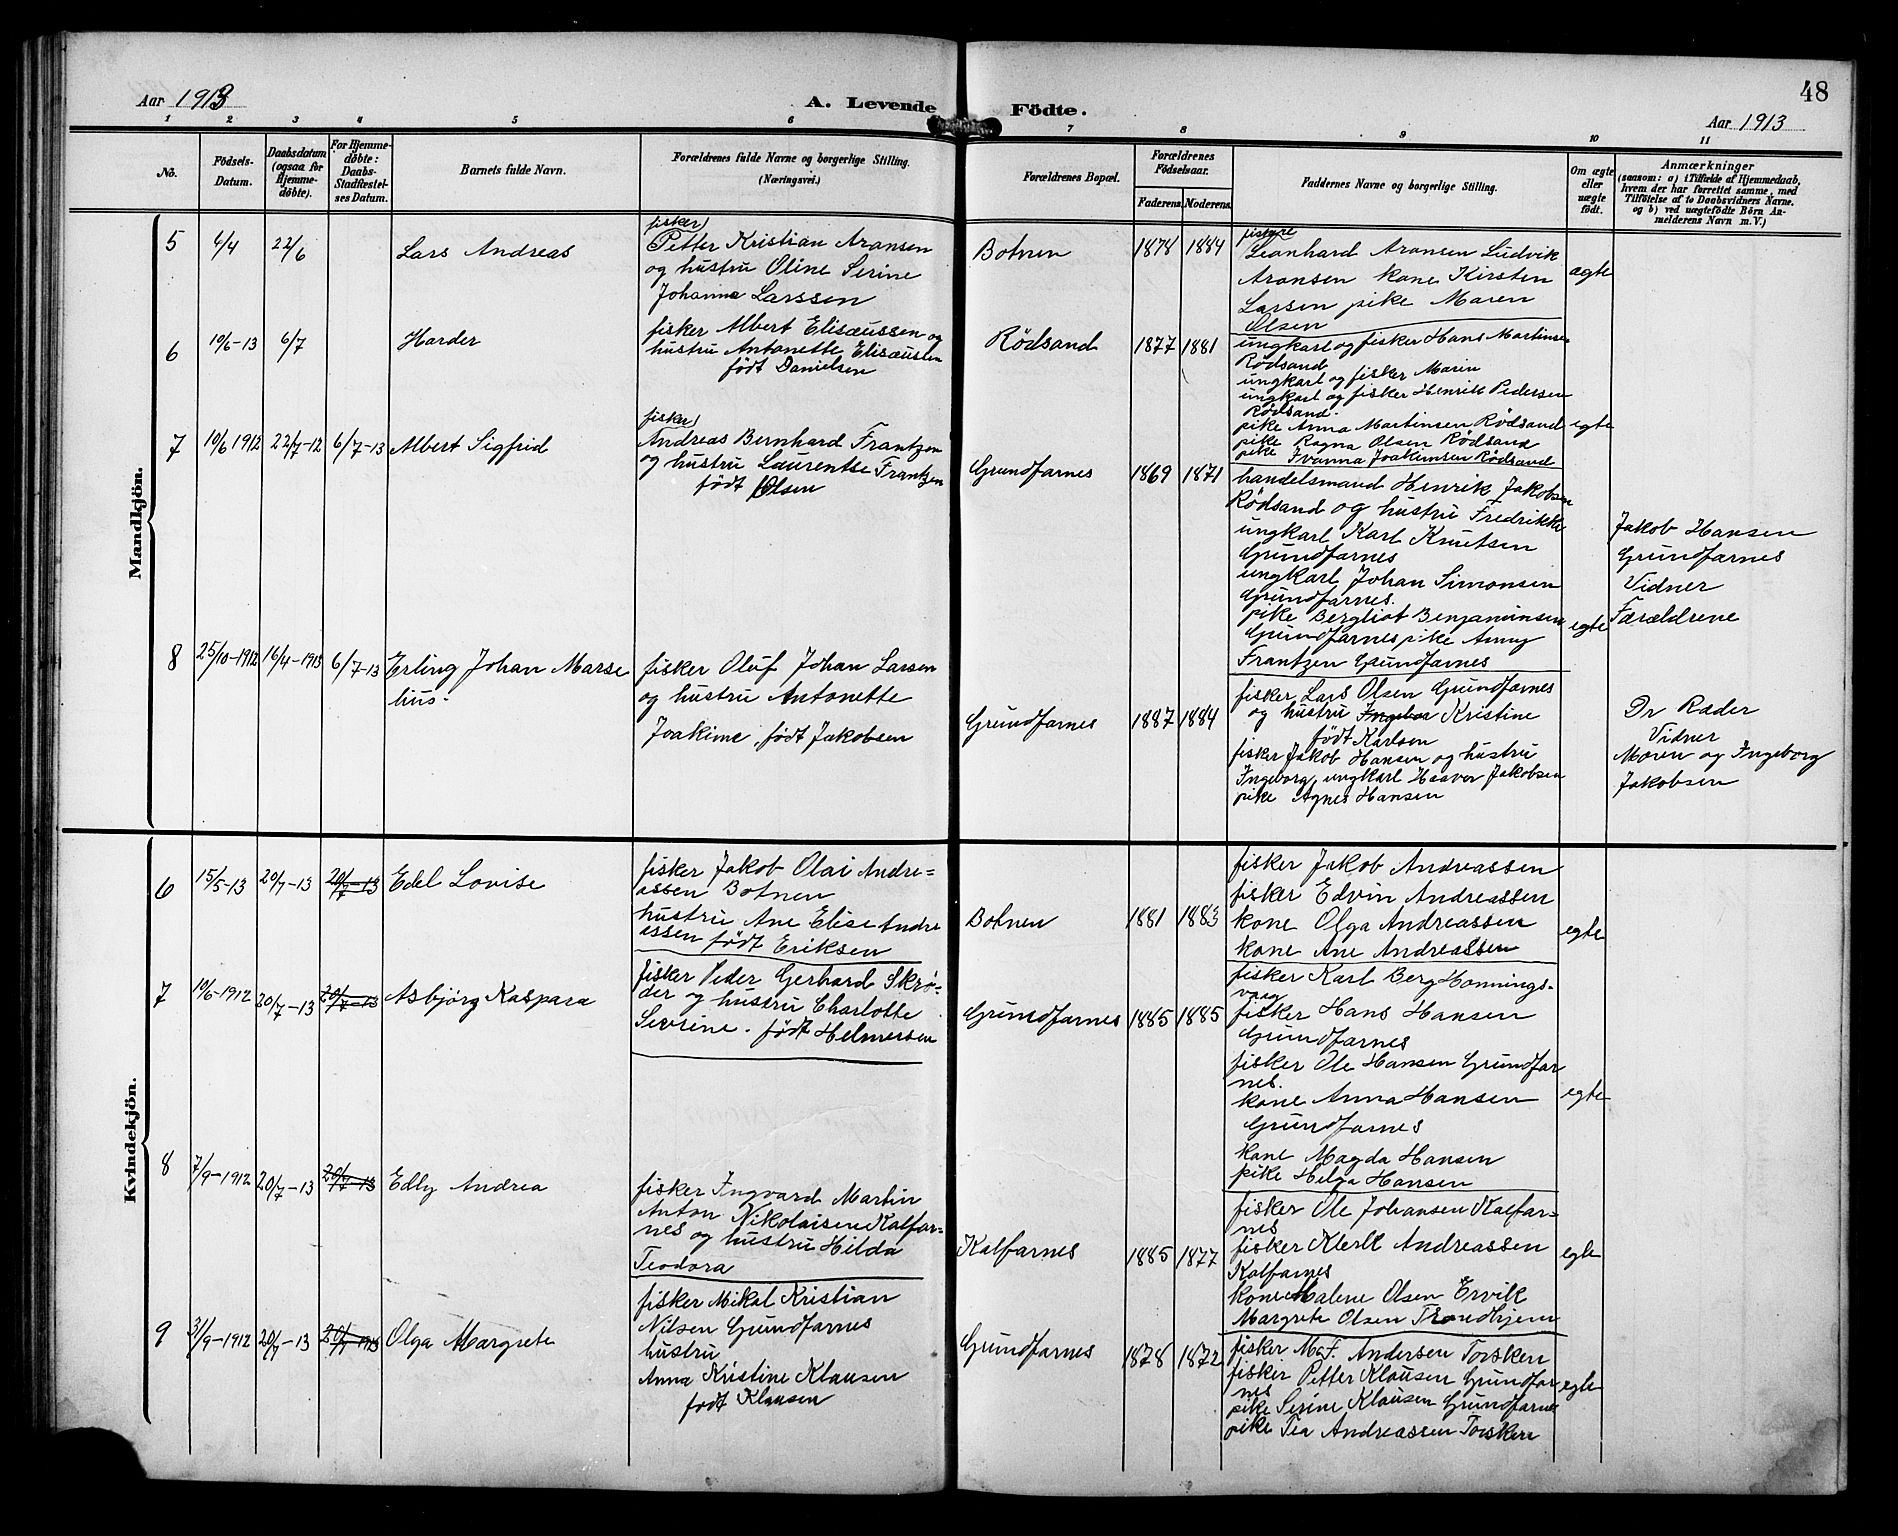 48
Aar 1913
A. Levende Födte.
Aar 1913
1 2 3 4 5 6 7 8 9 10 11
No.
Födsels-
Datum.
Daabsdatum
(ogsaa for
Hjemme-
döbte).
For Hjemme-
döbte:
Daabs-
Stadfæstel-
ses Datum.
Barnets fulde Navn.
Forældrenes fulde Navne og borgerlige Stilling.
(Næringsvei.)
Forældrenes Bopæl.
Forældrenes
Födselsaar.
Faderens. Moderens.
Faddernes Navne og borgerlige Stilling.
Om ægte
eller
uægte
födt.
Anmærkninger
(saasom: a) i Tilfælde af Hjemmedaab,
hvem der har forrettet samme, med
Tilföielse af to Daabsvidners Navne.
og b) ved uægtefödte Börn An-
melderens Navn m. V.)
Mandkjön.
5 6/4 22/6 Lars Andreas
fisker
Petter Kristian Aronsen
og hustru Oline Serine
Johanna Larssen
Botnen 1878 1884
fiskere
Leonhard Aronsen Ludvik
Aronsen kone Kirsten
Larsen pike Maren
Olsen
ægte
6 10/6-13 6/7 Harder
fisker Albert Elisæussen og
hustru Antonette Elisæussen
født Danielsen
Rödsand 1877 1881
ungkarl og fisker Hans Martinsen
Rødsand
ungkarl og fisker Marin
ungkarl og fisker Henrik Pedersen
Rødsand.
pike Anna Martinsen Rødsand
pike Ragna Olsen Rødsand
pike Ivanna Joakimsen Rødsand
egte
7 10/6 1912 22/7-12 6/7-13 Albert Sigfrid
fisker
Andreas Bernhard Frantzen
og hustru Laurentse Frantzen
født Olsen
Grundfarnes 1869 1871
handelsmand Henrik Jakobsen
Rødsand og hustru Fredrikke
ungkarl Karl Knutsen
Grundfarnes
ungkarl Johan Simonsen
Grundfarnes.
pike Bergliot Benjaminsen
Grundfarnes pike Anny
Frantzen Grundfarnes
egte
Jakob Hansen
Grundfarnes
Vidner
Forældrene
8 25/10-1912 16/4-1913 6/7-13 Erling Johan Marse
lius.
fisker Oluf Johan Larsen
og hustru Antonette
Joakime, født Jakobsen
Grundfarnes 1887 1884
fisker Lars Olsen Grundfarnes
og hustru Ingebor Kristine
født Karlsen
fisker Jakob Hansen og hustru
Ingeborg, ungkarl Haavor Jakobsen
pike Agnes Hansen
Dr Ræder
Vidner
Maren og Ingeborg
Jakobsen
Kvindekjön.
6 15/5-13 20/7-13 20/7-13 Edel Lovise
fisker Jakob Olai Andre=
assen Botnen
hustru Ane Elise Andre
assen født Eriksen
Botnen 1881 1883
fisker Jakob Andreassen
fisker Edvin Andreassen
kone Olga Andreassen
kone Ane Andreassen
egte
7 10/6-1912 20/7-13 20/7-13 Asbjörg Kaspara
fisker Peder Gerhard Skrø-
der og hustru Charlotte
Sevrine. født Helmersen
Grundfarnes 1885 1885
fisker Karl Berg Honnings-
vaag
fisker Hans Hansen
Grundfarnes
fisker Ole Hansen Grundfar
nes.
kone Anna Hansen
Grundfarnes
kone Magda Hansen
pike Helga Hansen
egte
8 7/9-1912 20/7-13 20/7-13 Edly Andrea
fisker Ingvard Martin
Anton Nikolaisen Kalfar=
nes og hustru Hilda
Teodora
Kalfarnes 1885 1877
fisker Ole Johansen Kalfar-
nes
fisker Klerk Andreassen
Kalfarnes
kone Malene Olsen Ervik
Margrete Olsen Trondhjem
egte
9 3/9-1912 20/7-13 20/7-1913 Olga Margrete
fisker Mikal Kristian
Nilsen Grundfarnes
hustru
Anna Kristine Klausen
født Klausen
Grundfarnes 1878 1872
fisker Andersen Torsken
fisker Petter Klausen Grundfar
nes
pike Serine Klausen Grundfarne
pike Tea Andreassen Torsken
egte